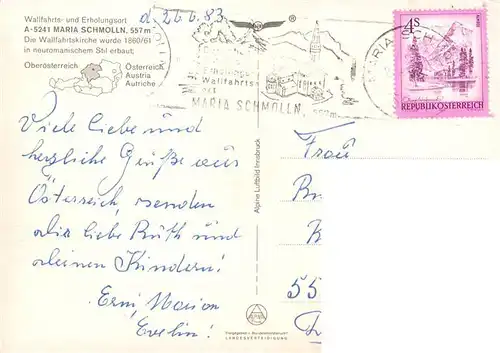 Wallfahrts- und Erholungsort
A-5241 MARIA SCHMOLLN, 557 m
Die Wallfahrtskirche wurde 1860/61
in neuromanischem Stil erbaut;
Oberösterreich
Österreich
Austria
Autriche
d. 26.6.83
®
Wallfahrts
ort
MARIA SCHMOLLN
MARIA SCH
4S
REPUBLIK ÖSTERREICH
Viele liebe und
herzliche Grüße aus
Österreich, senden
dir liebe Ruth und
deinen Kindern!
Erni, Marion
Evelin!
Alpine Luftbild Innsbruck
LANDESVERTEIDIGUNG
Frau
55